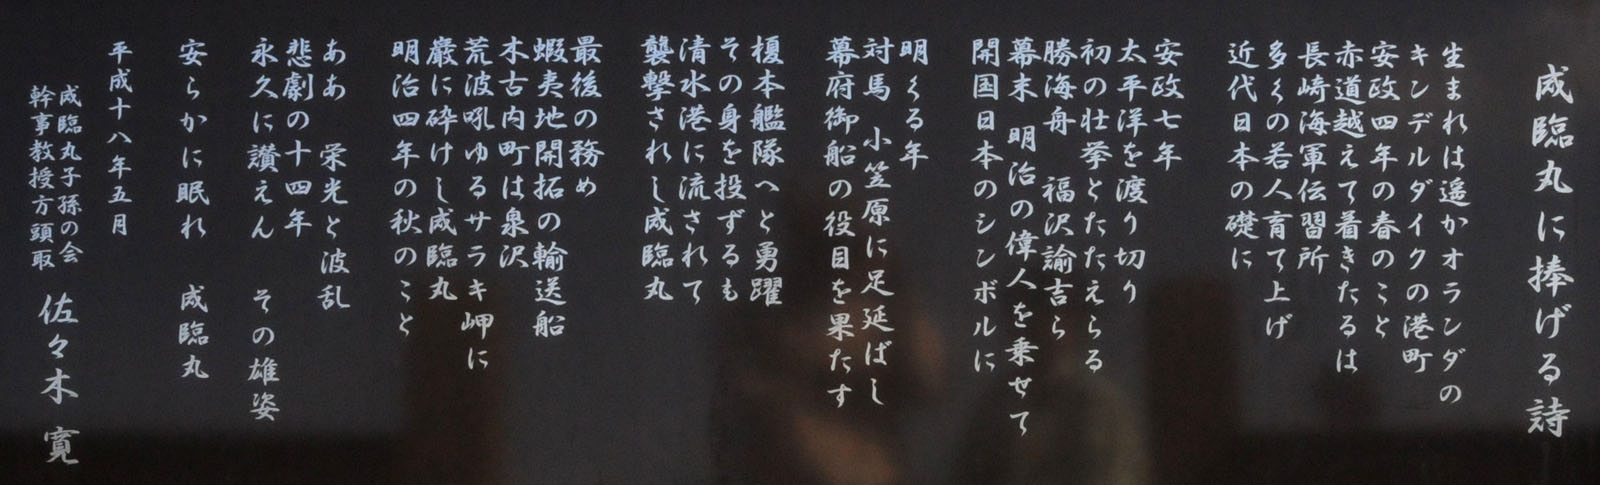 咸臨丸に捧げる詩
生まれは遥かオランダの
キンデルダイクの港町
安政四年の春のこと
赤道越えて着きたるは
長崎海軍伝習所
多くの若人育て上げ
近代日本の礎に
安政七年
太平洋を渡り切り
初の壮挙とたたえらる
勝海舟 福沢諭吉ら
幕末 明治の偉人を乗せて
開国日本のシンボルに
明くる年
対馬 小笠原に足延ばし
幕府御船の役目を果たす
榎本艦隊へと勇躍
その身を投ずるも
清水港に流されて
襲撃されし咸臨丸
最後の務め
蝦夷地開拓の輸送船
木古内町は泉沢
荒波吼ゆるサラキ岬に
巌に砕けし咸臨丸
明治四年の秋のこと
ああ 栄光と波乱
悲劇の十四年
永久に讃えん その雄姿
安らかに眠れ 咸臨丸
平成十八年五月
咸臨丸子孫の会
幹事教授方頭取 佐々木 寛